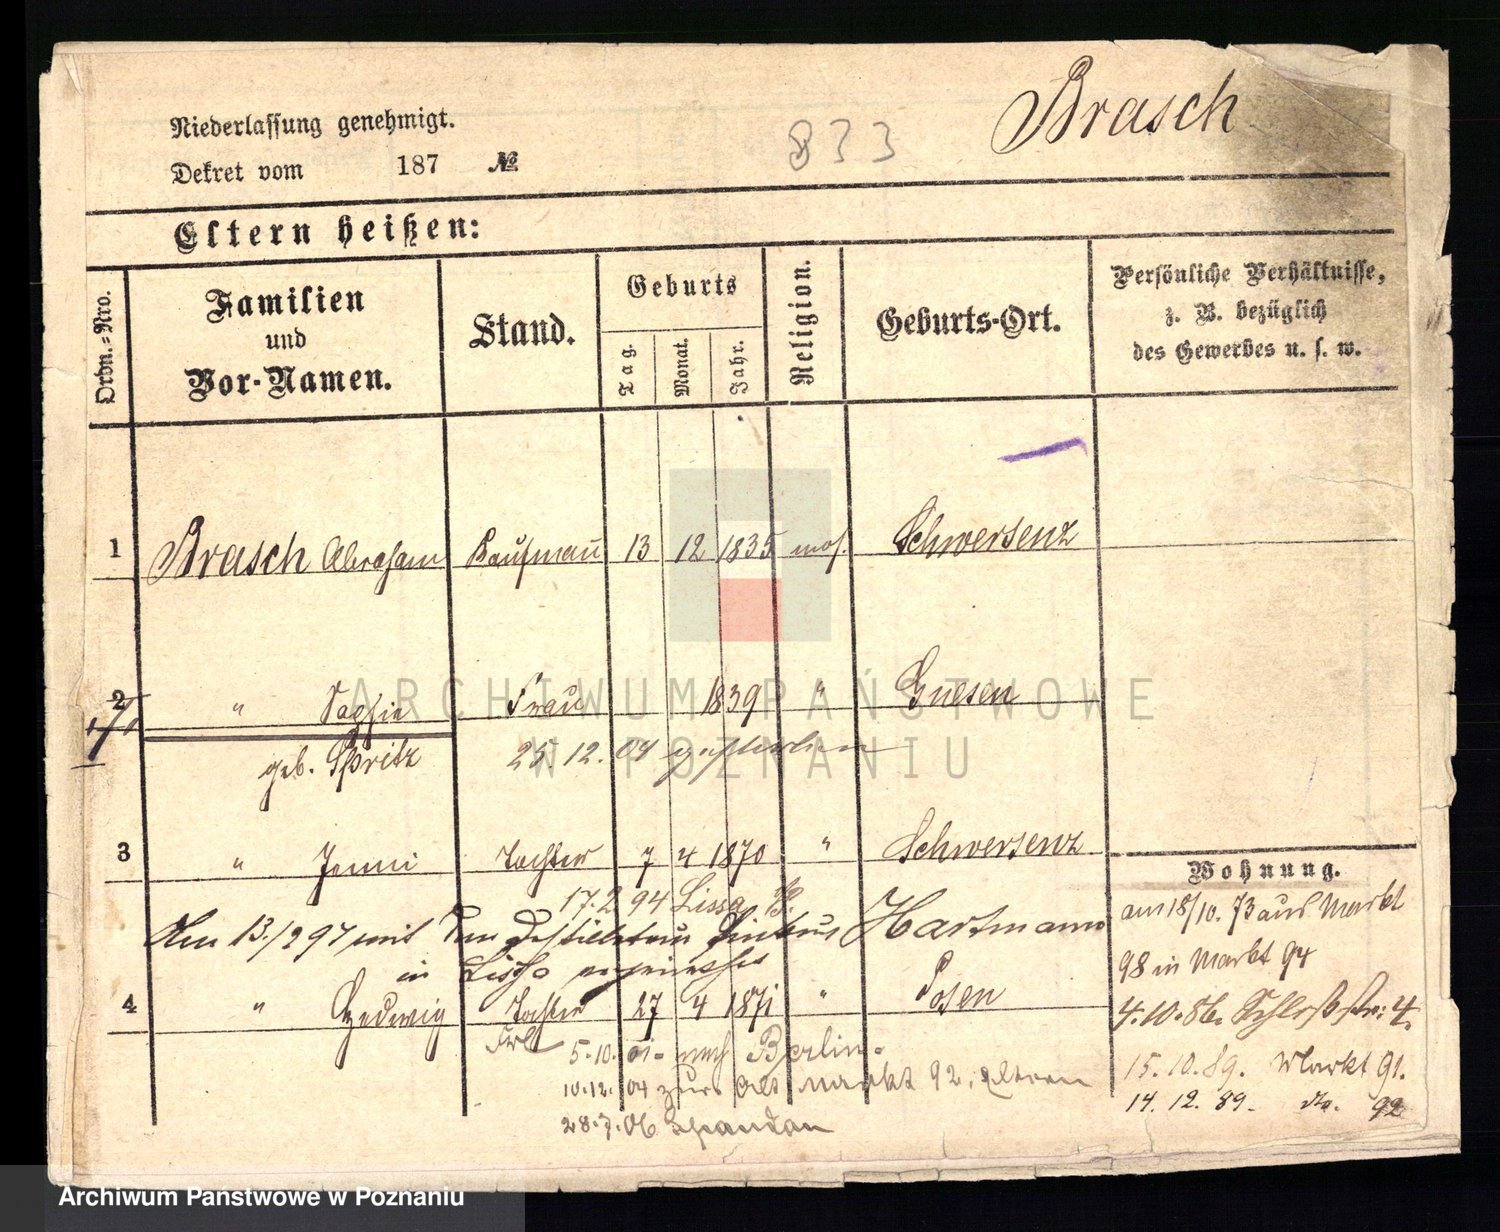 Brasch
Niederlassung genehmigt.
833
Dekret vom 187 №
Eltern heißen:
Ordn.-Nro.
Familien und Vor-Namen.
Stand.
Geburts
Tag.
Monat.
Jahr.
Religion.
Geburts-Ort.
Persönliche Verhältnisse,
z. B. bezüglich
des Gewerbes u. s. w.
1 Brasch Abraham Kaufmann 13 12 1835 mos. Schwersenz
2 " Sophie Frau 1839 " Gnesen
geb. Spritz 25.12.04 gestorben
3 " Jenni Tochter 7 4 1870 " Schwersenz
17.2 94 Lissa
Am 13./2 97 mit dem Destillateur Pinkus Hartmann
in Lissa
4 " Hedwig Tochter 27 4 1871 " Posen
Frl. 5.10. nach Berlin.
10.12.04 zur. Alt Markt 92. Eltern
28.7.06 Spandau
Wohnung.
am 18/10. 73 aus Markt
98 in Markt 94
4.10.86. Schloßstr: 4.
15.10.89. Markt 91.
14.12.89. do. 92
ARCHIWUM PAŃSTWOWE
W POZNANIU
Archiwum Państwowe w Poznaniu